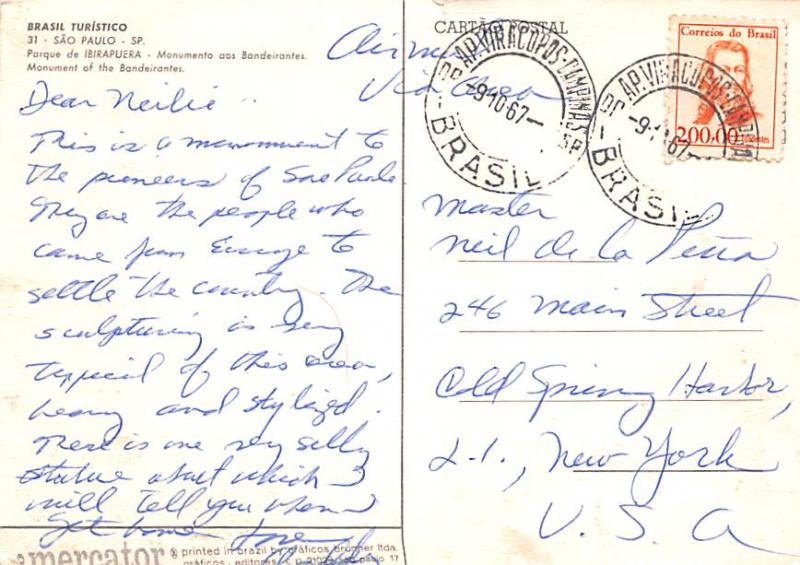 BRASIL TURÍSTICO
31 - SÃO PAULO - SP.
Parque de IBIRAPUERA - Monumento aos Bandeirantes.
Monument of the Bandeirantes.
Dear Neilie..
This is a monument to
the pioneers of Sao Paulo
They are the people who
came from Europe to
settle the country. The
sculpturing is very
typical of this area,
heavy and stylized.
There is one very silly
statue about which I
will tell you when I
get home. Love
mercator ® printed in brazil by gráficos brunner ltda.
gráficos - editores - c. p. paulo 17
CARTÃO POSTAL
Air mail
Via Aerea
AP. VIRACOPOS-CAMPINAS-SP
-9.10.67-
BRASIL
AP. VIRACOPOS
67-
BRASIL
Correios do Brasil
200,00
Master
Neil de la Peña
246 Main Street
Cold Spring Harbor,
L.I., New York
U.S.A